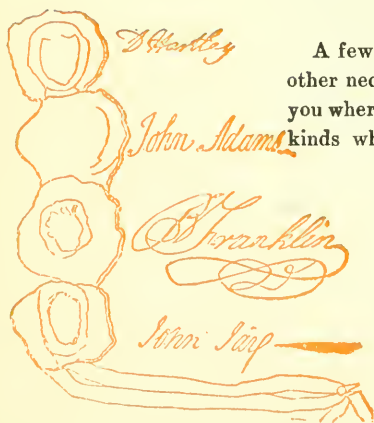 D Hartley
John Adams
B Franklin
John Jay
A few
other nec
you wher
kinds wh